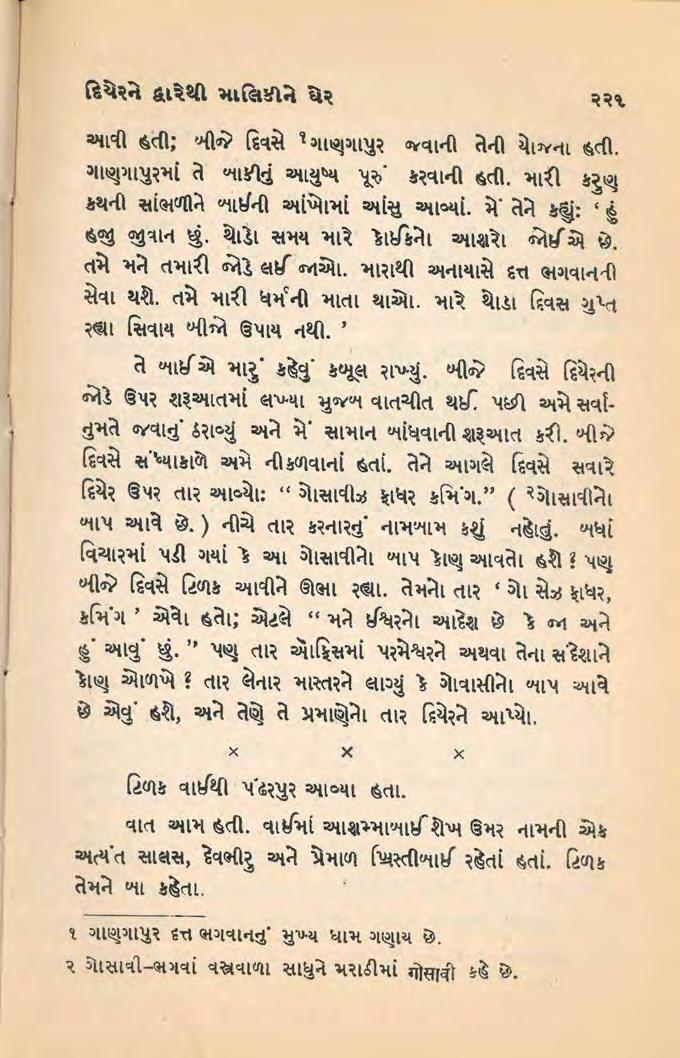 દિયેરને દ્વારેથી માલિકીને ઘેર ૨૨૧
આવી હતી; બીજે દિવસે ૧ગાણગાપુર જવાની તેની યોજના હતી.
ગાણગાપુરમાં તે બાકીનું આયુષ્ય પૂરું કરવાની હતી. મારી કરુણ
કથની સાંભળીને બાઈની આંખોમાં આંસુ આવ્યાં. મેં તેને કહ્યું: ‘ હું
હજી જુવાન છું. થોડો સમય મારે કોઈકનો આશરો જોઈએ છે.
તમે મને તમારી જોડે લઈ જાઓ. મારાથી અનાયાસે દત્ત ભગવાનની
સેવા થશે. તમે મારી ધર્મની માતા થાઓ. મારે થોડા દિવસ ગુપ્ત
રહ્યા સિવાય બીજો ઉપાય નથી. ’
તે બાઈએ મારું કહેવું કબૂલ રાખ્યું. બીજે દિવસે દિયેરની
જોડે ઉપર શરૂઆતમાં લખ્યા મુજબ વાતચીત થઈ. પછી અમે સર્વા-
નુમતે જવાનું ઠરાવ્યું અને મેં સામાન બાંધવાની શરૂઆત કરી. બીજે
દિવસે સંધ્યાકાળે અમે નીકળવાનાં હતાં. તેને આગલે દિવસે સવારે
દિયેર ઉપર તાર આવ્યો: “ ગોસાવીઝ ફાધર કમિંગ.” ( ૨ગોસાવીનો
બાપ આવે છે. ) નીચે તાર કરનારનું નામબામ કશું નહોતું. બધાં
વિચારમાં પડી ગયાં કે આ ગોસાવીનો બાપ કોણ આવતો હશે ? પણ
બીજે દિવસે ટિળક આવીને ઊભા રહ્યા. તેમનો તાર ‘ ગો સેઝ ફાધર,
કમિંગ ’ એવો હતો; એટલે “ મને ઈશ્વરનો આદેશ છે કે જા અને
હું આવું છું. ” પણ તાર ઑફિસમાં પરમેશ્વરને અથવા તેના સંદેશાને
કોણ ઓળખે ? તાર લેનાર માસ્તરને લાગ્યું કે ગોવાસીનો બાપ આવે
છે એવું હશે, અને તેણે તે પ્રમાણેનો તાર દિયેરને આપ્યો.
× × ×
ટિળક વાઈથી પંઢરપુર આવ્યા હતા.
વાત આમ હતી. વાઈમાં આશમ્માબાઈ શેખ ઉમર નામની એક
અત્યંત સાલસ, દેવભીરુ અને પ્રેમાળ ખ્રિસ્તીબાઈ રહેતાં હતાં. ટિળક
તેમને બા કહેતા.
૧ ગાણગાપુર દત્ત ભગવાનનું મુખ્ય ધામ ગણાય છે.
૨ ગોસાવી–ભગવાં વસ્ત્રવાળા સાધુને મરાઠીમાં गोसावी કહે છે.